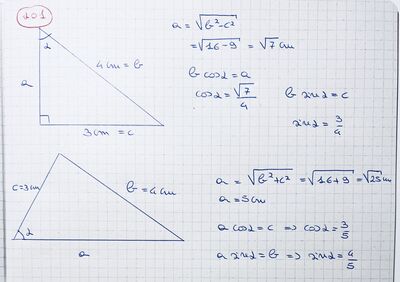 401
α
a
4cm = b
3cm = c
a = √b²-c²
= √16-9 = √7 cm
b cosα = a
cosα = √7/4
b sinα = c
sinα = 3/4
c=3cm
b=4cm
α
a
a = √b²+c² = √16+9 = √25cm
a = 5cm
a cosα = c ⇒ cosα = 3/5
a sinα = b ⇒ sinα = 4/5